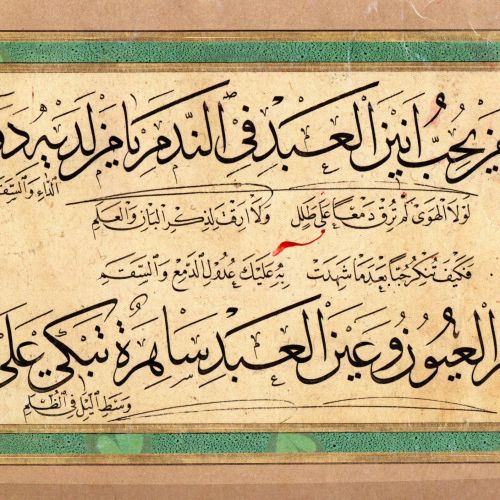 يحب انين العبد في الندم يا من لديه
الداء والسقم
لولا الهوى لم ترق دمعا على طلل ولا ارقت لذكر البان والعلم
فكيف تنكر حبا بعد ما شهدت به عليك عدول الدمع والسقم
العيون وعين العبد ساهرة تبكي على
وسط الليل في الظلم